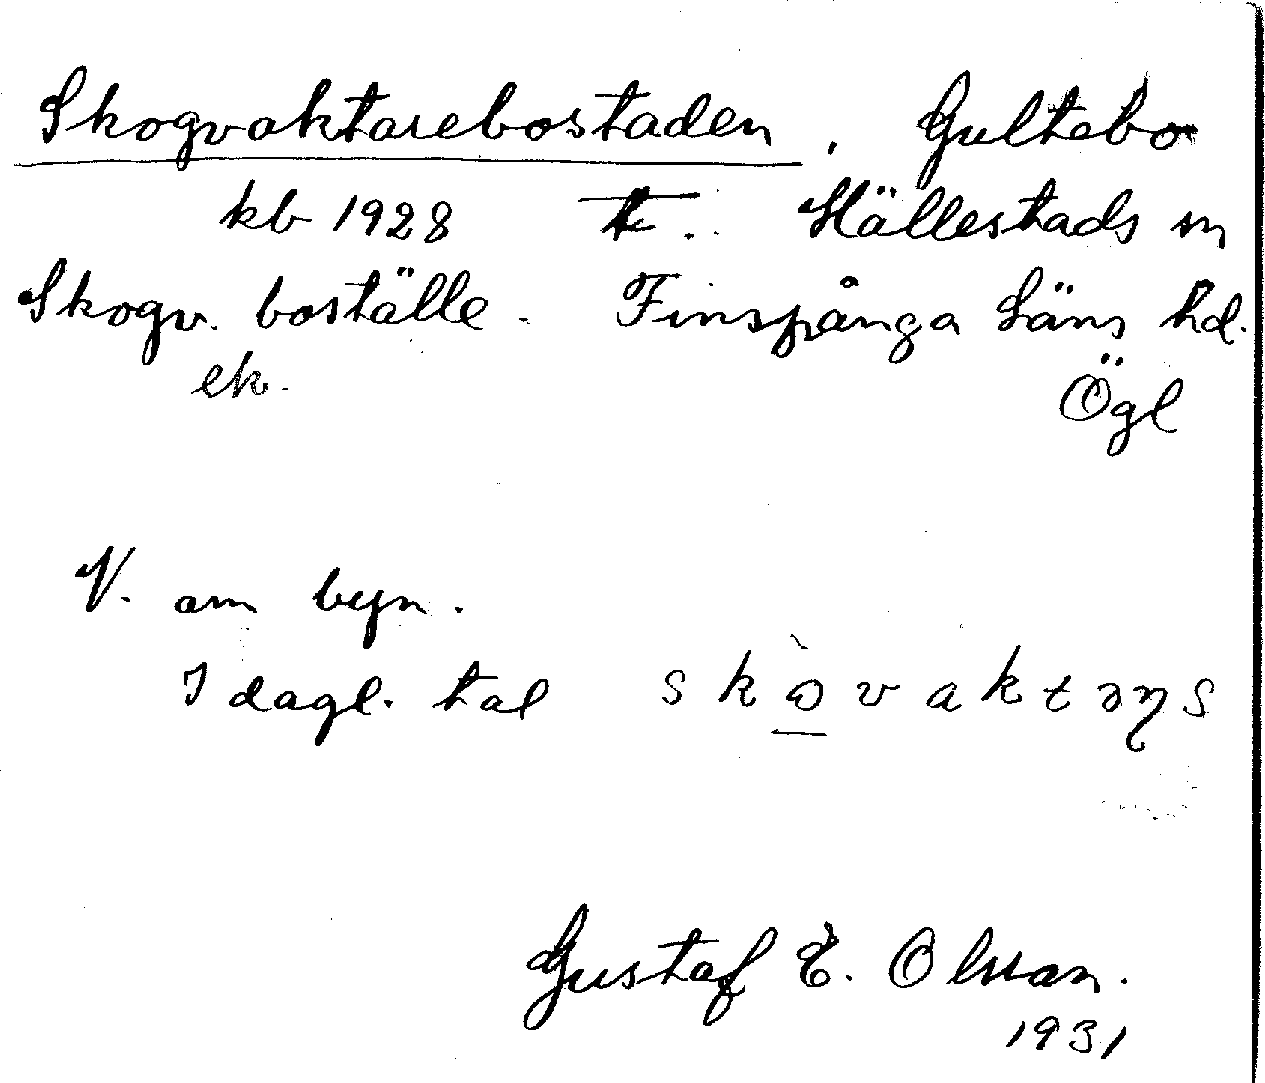 Skogvaktarebostaden, Gultebo
kb 1928 tt. Hällestads sn
Skogv. boställe. Finspånga läns hd.
ek. Ögl
V. om byn.
I dagl. tal skɷ̀vaktəɳs
Gustaf E. Olsson.
1931